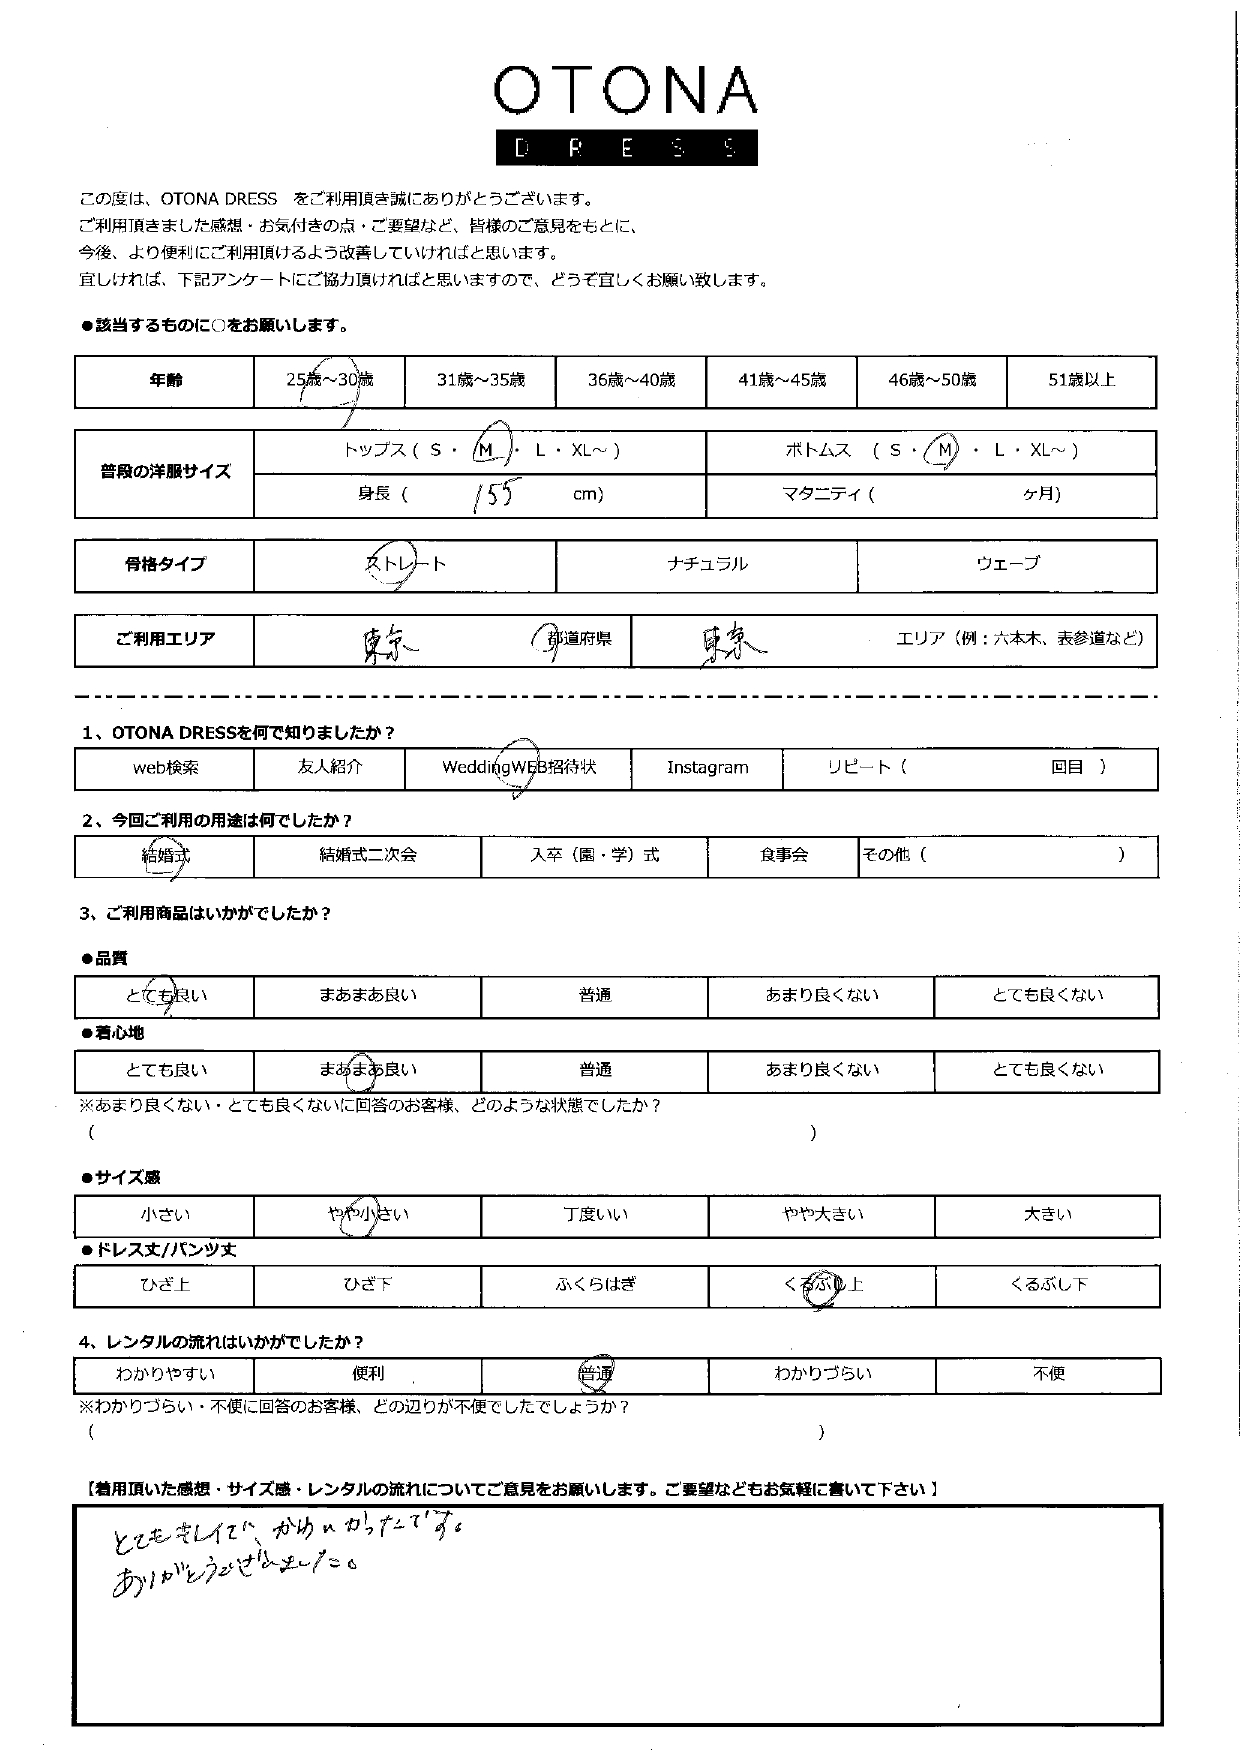 OTONA
DRESS
この度は、OTONA DRESS をご利用頂き誠にありがとうございます。
ご利用頂きました感想・お気付きの点・ご要望など、皆様のご意見をもとに、
今後、より便利にご利用頂けるよう改善していければと思います。
宜しければ、下記アンケートにご協力頂ければと思いますので、どうぞ宜しくお願い致します。
●該当するものに○をお願いします。
年齢 25歳～30歳 31歳～35歳 36歳～40歳 41歳～45歳 46歳～50歳 51歳以上
普段の洋服サイズ
トップス ( S ・ M ・ L ・ XL～ ) ボトムス ( S ・ M ・ L ・ XL～ )
身長 ( 155 cm) マタニティ ( ヶ月)
骨格タイプ ストレート ナチュラル ウェーブ
ご利用エリア 東京 都道府県 東京 エリア（例：六本木、表参道など）
1、OTONA DRESSを何で知りましたか？
web検索 友人紹介 WeddingWEB招待状 Instagram リピート ( 回目 )
2、今回ご利用の用途は何でしたか？
結婚式 結婚式二次会 入卒（園・学）式 食事会 その他 ( )
3、ご利用商品はいかがでしたか？
●品質
とても良い まあまあ良い 普通 あまり良くない とても良くない
●着心地
とても良い まあまあ良い 普通 あまり良くない とても良くない
※あまり良くない・とても良くないに回答のお客様、どのような状態でしたか？
( )
●サイズ感
小さい やや小さい 丁度いい やや大きい 大きい
●ドレス丈/パンツ丈
ひざ上 ひざ下 ふくらはぎ くるぶし上 くるぶし下
4、レンタルの流れはいかがでしたか？
わかりやすい 便利 普通 わかりづらい 不便
※わかりづらい・不便に回答のお客様、どの辺りが不便でしたでしょうか？
( )
【着用頂いた感想・サイズ感・レンタルの流れについてご意見をお願いします。ご要望などもお気軽に書いて下さい】
とてもキレイで、かわいかったです。
ありがとうございました。